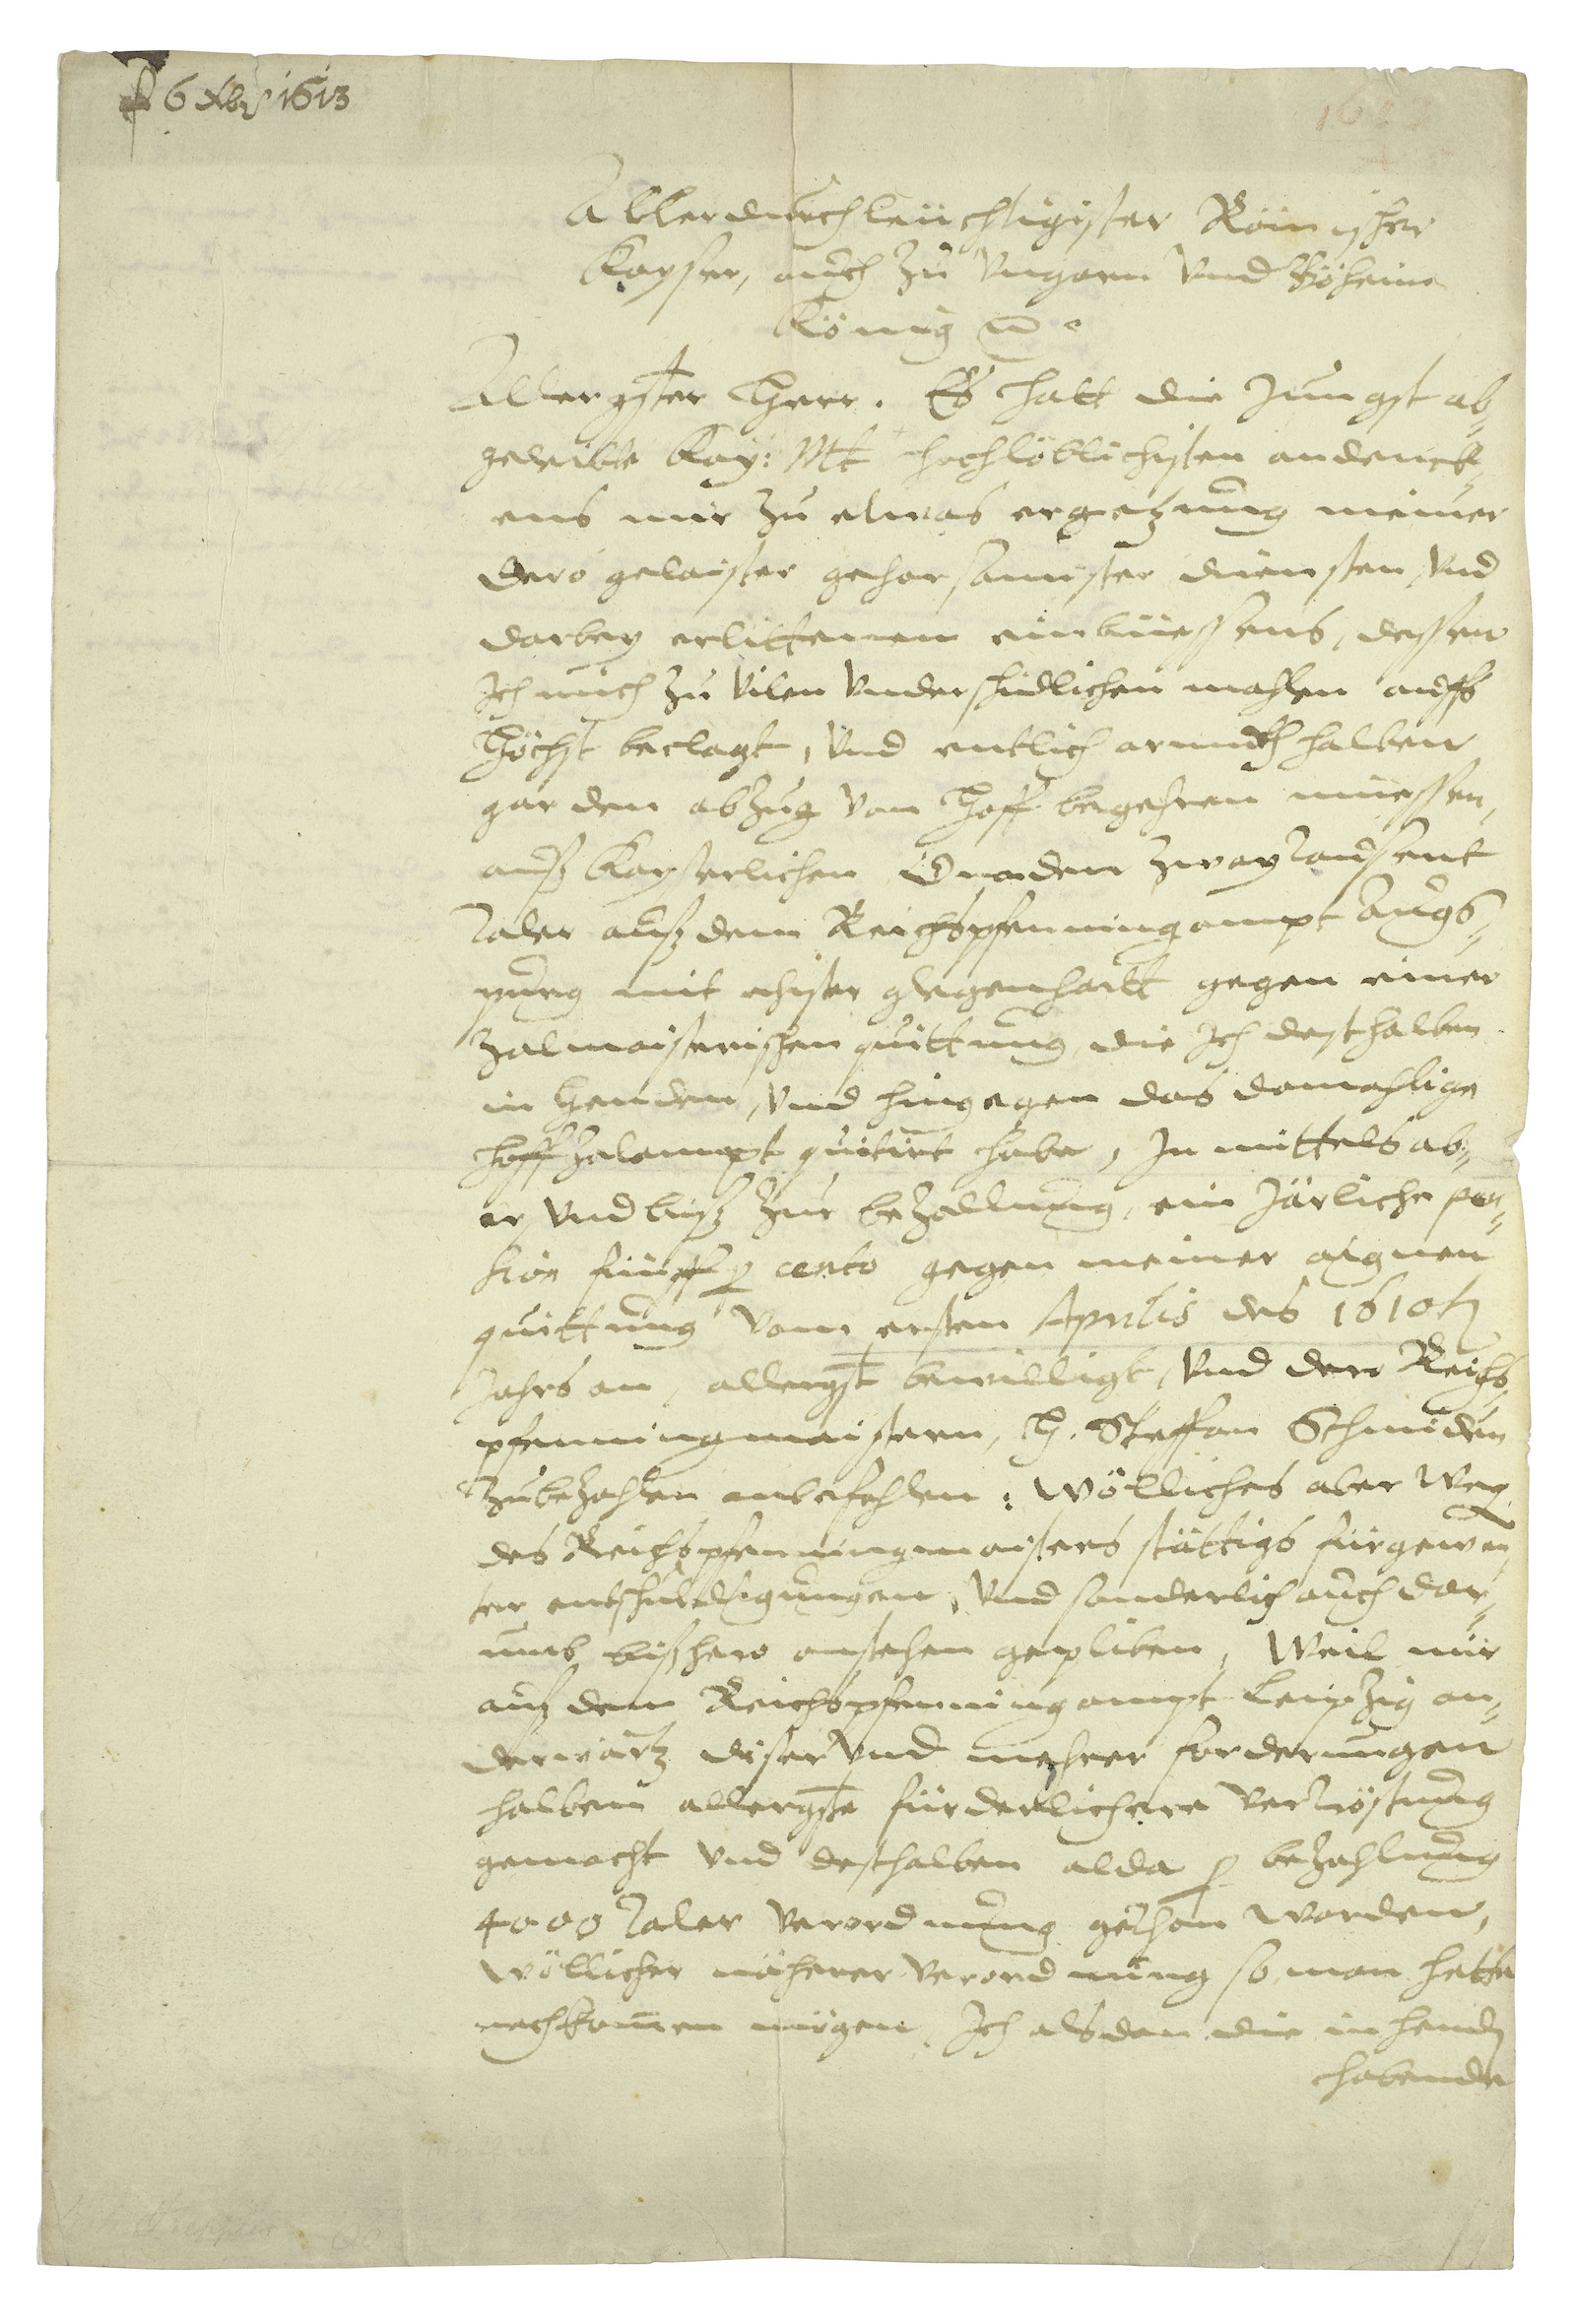 6 Xbr 1613
Allerdurchleuchtigister Römischer
Kayser, auch zu Vngarn vnd Böheim
König
Allergster Herr. Es hatt die Jungst ab„
geleibte Kay: Mt hochlöblichisten andenck„
ens mir zu etwas ergetzung meiner
Dero gelaister gehorsamister diensten, vnd
darbey erlittenen einbüessens, dessen
Ich mich zu vilen vnderschidlichen mahlen auffs
Höchst beclagt, vnd entlich armuth halben
gar den abzug von Hoff begehren müessen,
auß Kayserlichen Gnaden zway Tausent
Taler auß dem Reichspfenningampt Augs„
purg mit ehister glegenhaitt gegen einer
zalmaisterischen quittung, die Ich desthalben
in Henden, vnd hingegen das damahlige
Hoffzalampt quitirt habe, Inmittels ab„
er, vnd biß zur bezallung, ein Järliche pen„
sion fünff p cento gegen meiner aignen
quittung vom ersten Aprilis des 1610ten
Jahrs an, allergst bewilligt, vnd dero Reichs„
pfenningmaistern, H. Steffan Schmiden
zubezahlen anbefohlen: Wölliches aber weg.
des Reichspfenningmaisters stättigs fürgewen„
ter entschuldigungen, vnd sonderlich auch dar„
umb bißhero anstehen gepliben, Weil mir
auß dem Reichspfenningampt Leipzig an„
derwärtz diser vnd mehrer forderungen
halben allergste fürderlichere vertröstung
gemacht vnd desthalben alda p bezahlung
4000 Taler verordnung gethan worden,
Wöllicher näherer verordnung so man hette
nachkommen mögen, Ich alsdan die in henden
habende